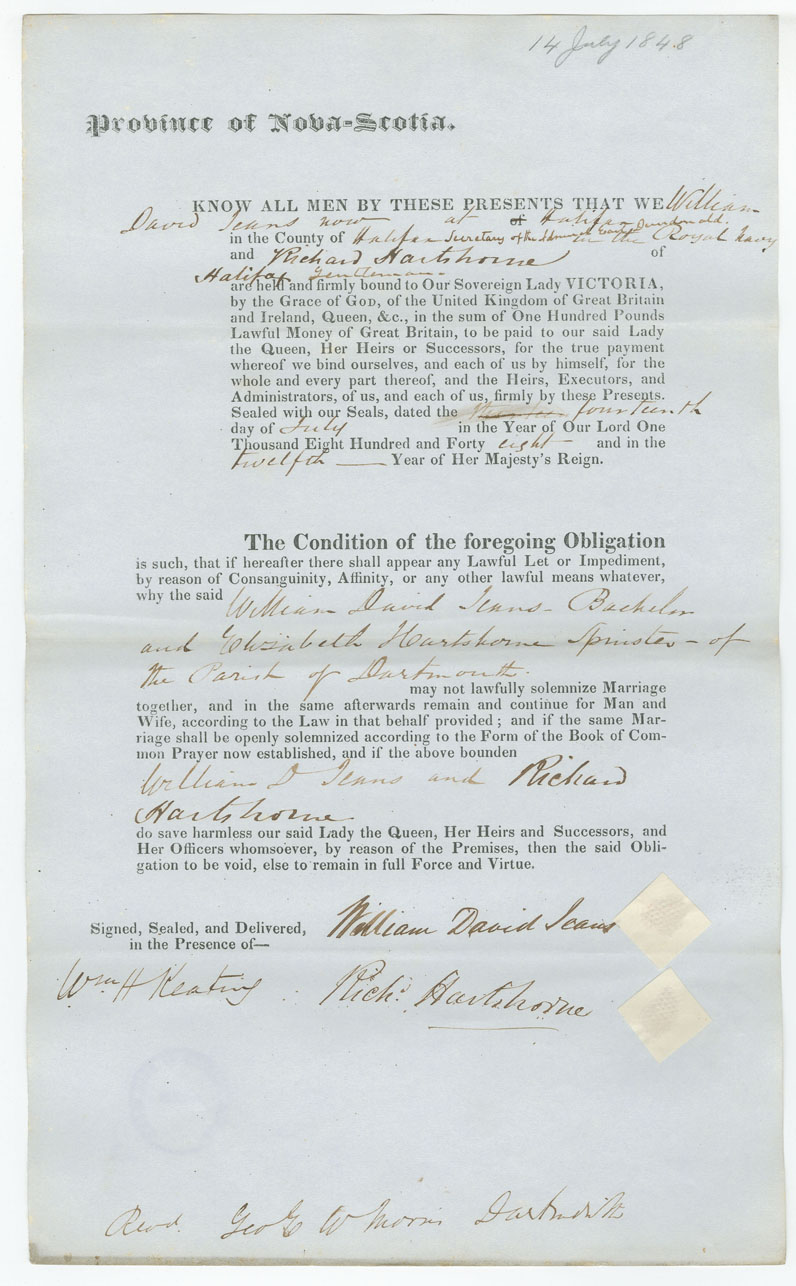 14 July 1848
Province of Nova-Scotia.
KNOW ALL MEN BY THESE PRESENTS THAT WE William
David Jeans now at of Halifax
in the County of Halifax Secretary of the Admiral Earl Dundonald. in the Royal Navy
and Richard Hartshorne of
Halifax Gentleman
are held and firmly bound to Our Sovereign Lady VICTORIA,
by the Grace of GOD, of the United Kingdom of Great Britain
and Ireland, Queen, &c., in the sum of One Hundred Pounds
Lawful Money of Great Britain, to be paid to our said Lady
the Queen, Her Heirs or Successors, for the true payment
whereof we bind ourselves, and each of us by himself, for the
whole and every part thereof, and the Heirs, Executors, and
Administrators, of us, and each of us, firmly by these Presents.
Sealed with our Seals, dated the fourteenth
day of July in the Year of Our Lord One
Thousand Eight Hundred and Forty eight and in the
twelfth — Year of Her Majesty's Reign.
The Condition of the foregoing Obligation
is such, that if hereafter there shall appear any Lawful Let or Impediment,
by reason of Consanguinity, Affinity, or any other lawful means whatever,
why the said William David Jeans - Bachelor
and Elizabeth Hartshorne Spinster - of
the Parish of Dartmouth.
may not lawfully solemnize Marriage
together, and in the same afterwards remain and continue for Man and
Wife, according to the Law in that behalf provided; and if the same Mar-
riage shall be openly solemnized according to the Form of the Book of Com-
mon Prayer now established, and if the above bounden
William D Jeans and Richard
Hartshorne
do save harmless our said Lady the Queen, Her Heirs and Successors, and
Her Officers whomsoever, by reason of the Premises, then the said Obli-
gation to be void, else to remain in full Force and Virtue.
Signed, Sealed, and Delivered, William David Jeans
in the Presence of—
Wm H Keating Richd Hartshorne
Revd. Geo W Morris Dartmouth